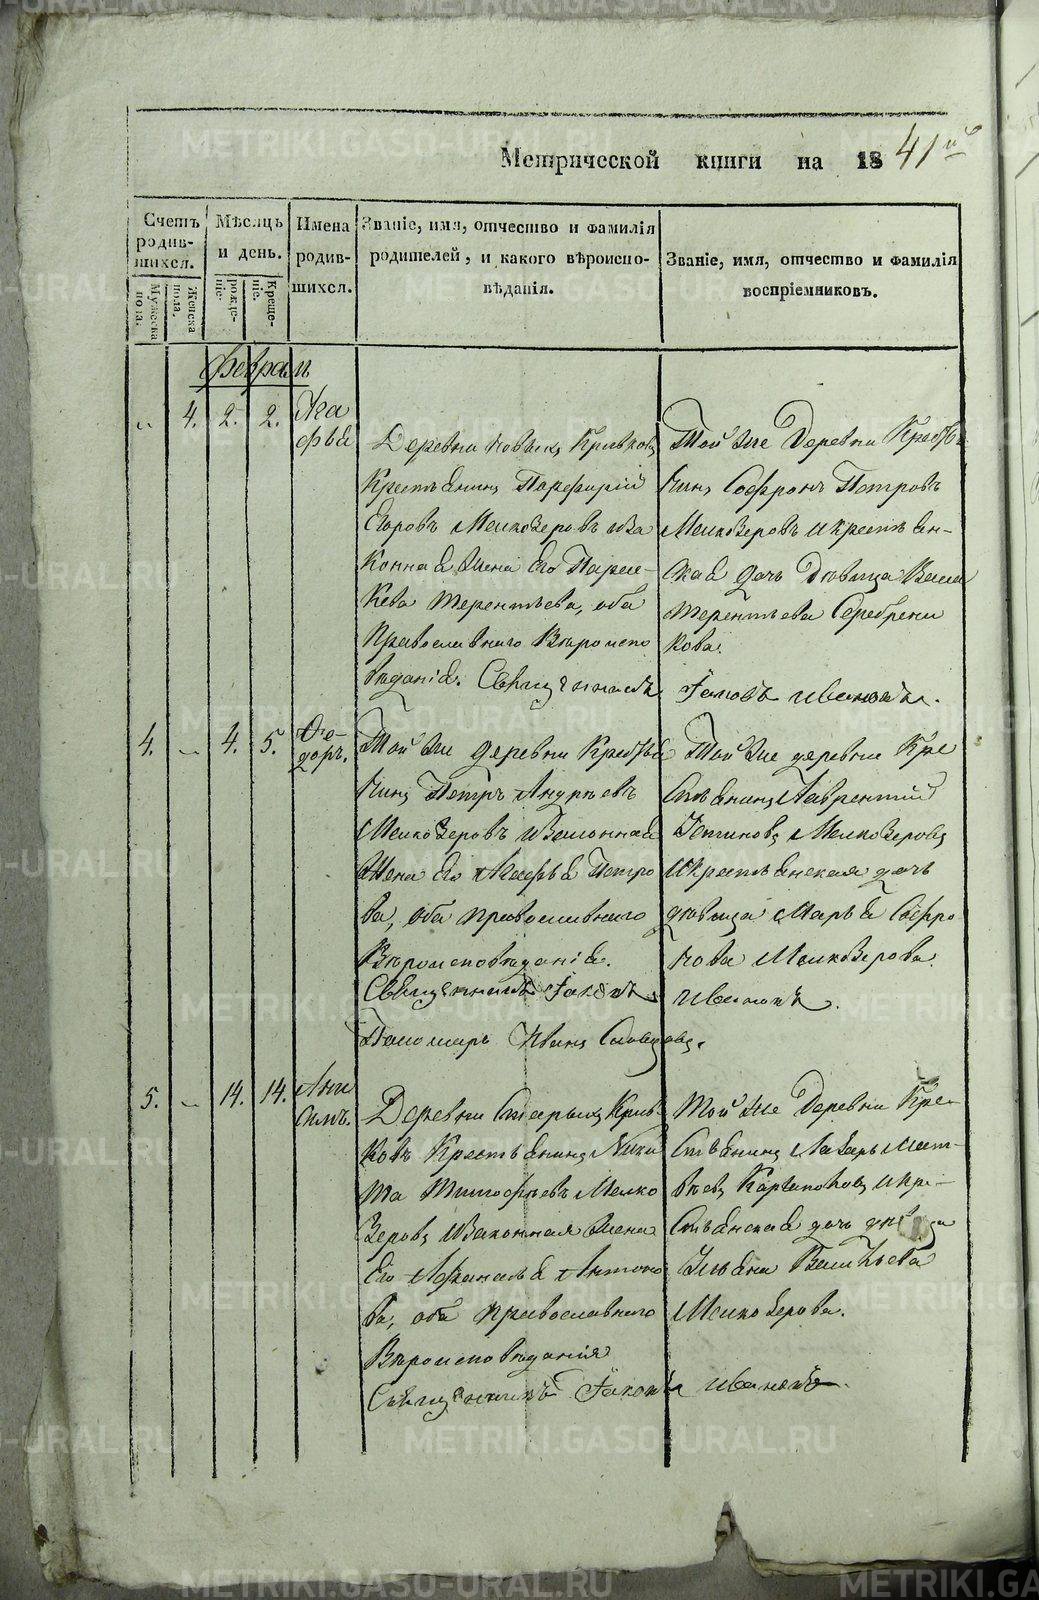 Метрической книги на 1841й
Счетъ родившихся.
Мужеска пола.
Женска пола.
Мѣсяцъ и день.
рожденіе.
Крещеніе.
Имена родившихся.
Званіе, имя, отчество и фамилія
родителей, и какого вѣроиспо-
вѣданія.
Званіе, имя, отчество и фамилія
воспріемниковъ.
Февраль
„ 4. 2. 2. Ага
фья
Деревни Новыхъ Кривков
Крестьянинъ Порфирій
Егоровъ Мелкозеровъ иза
конная жена его Параске
Терентьева, оба
Православнаго Вѣроиспо
вѣданія. Священникъ Іаковъ Ивановъ.
Той же Деревни Кресть
нинъ Софронъ Петровъ
Мелкозеровъ и крестьян-
ская дочь Дѣвица
Терентьева Серебрени
кова.
4. „ 4. 5. Ѳео-
доръ.
Той же деревни Кресть
нинъ Петръ Андреевъ
Мелкозеровъ изаконная
жена его Агафья Петро
ва, оба православнаго
Вѣроисповѣданія.
Священникъ Іаковъ Ивановъ.
Пономарь Иванъ Словцовъ.
Той же деревни Кре
стьянинъ Лаврентій
Мелкозеровъ
и крестьянская дочь
дѣвица Марья Софро
нова Мелкозерова.
5. „ 14. 14. Ани
симъ.
Деревни Старыхъ Крив
ковъ Крестьянинъ Ники
та Тимофѣевъ Мелко
зеровъ изаконная жена
его Афанасья Антоно
ва, оба православнаго
Вѣроисповѣданія
Священникъ Іаковъ Ивановъ.
Той же Деревни Кре-
стьянинъ Лазарь Мат-
вѣевъ и кре-
стьянская дочь дѣвица
Ульяна Васильева
Мелкозерова.
METRIKI.GASO-URAL.RU